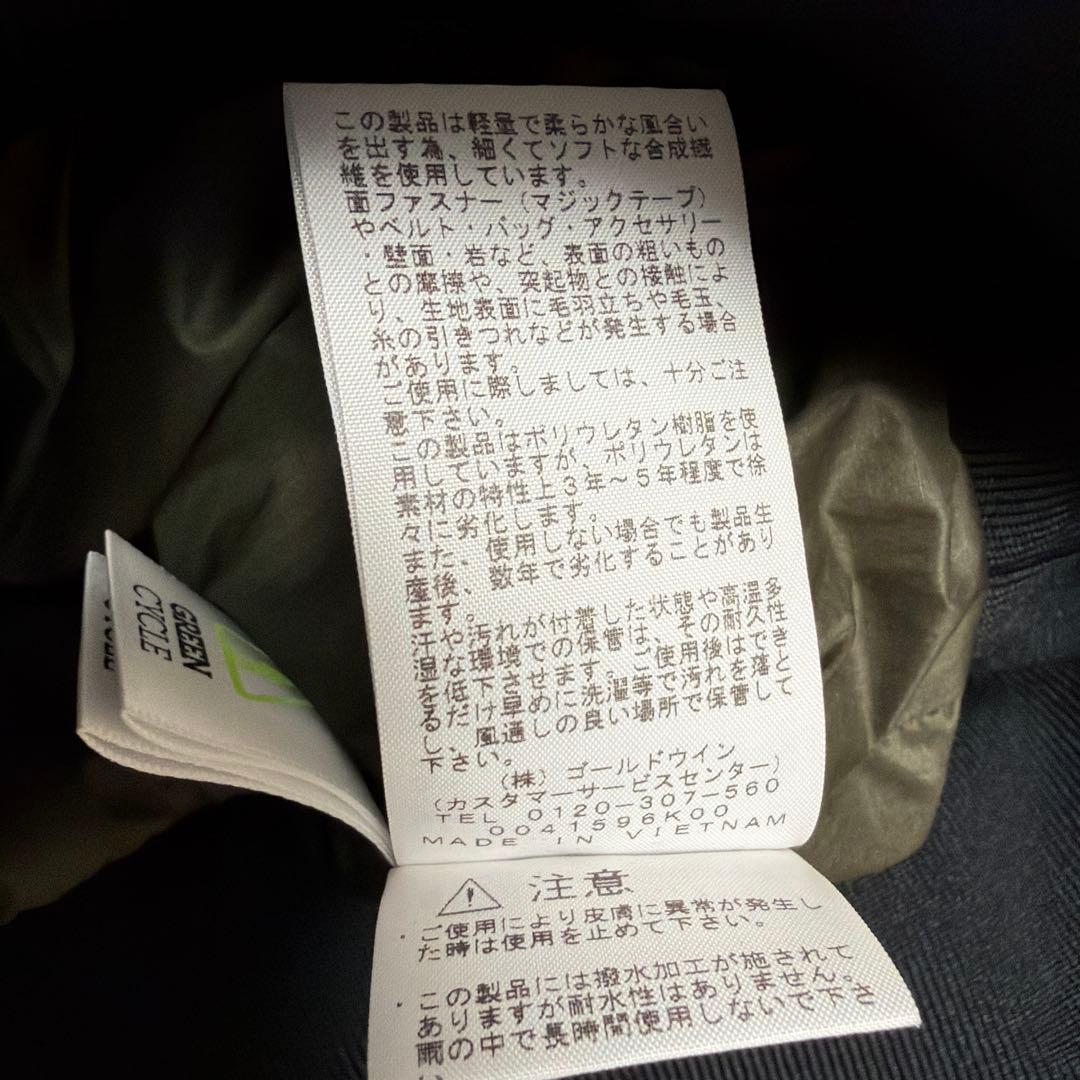 この製品は軽量で柔らかな風合い
を出す為、細くてソフトな合成繊
維を使用しています。
面ファスナー（マジックテープ）
やベルト・バッグ・アクセサリー
・壁面・岩など、表面の粗いもの
との摩擦や、突起物との接触によ
り、生地表面に毛羽立ちや毛玉、
糸の引きつれなどが発生する場合
があります。
ご使用に際しましては、十分ご注
意下さい。
この製品はポリウレタン樹脂を使
用していますが、ポリウレタンは
素材の特性上３年～５年程度で徐
々に劣化します。
また、使用しない場合でも製品生
産後、数年で劣化することがあり
ます。
汗や汚れが付着した状態や高温多
湿な環境での保管は、その耐久性
を低下させます。ご使用後はできる
だけ早めに洗濯等で汚れを落とし、
風通しの良い場所で保管して
下さい。
（株）ゴールドウイン
（カスタマーサービスセンター）
TEL 0120-307-560
0041596K00
MADE IN VIETNAM
GREEN
CYCLE
注意
・ご使用により皮膚に異常が発生し
た時は使用を止めて下さい。
・この製品には撥水加工が施されて
ありますが耐水性はありません。
雨の中で長時間使用しないで下さ
い